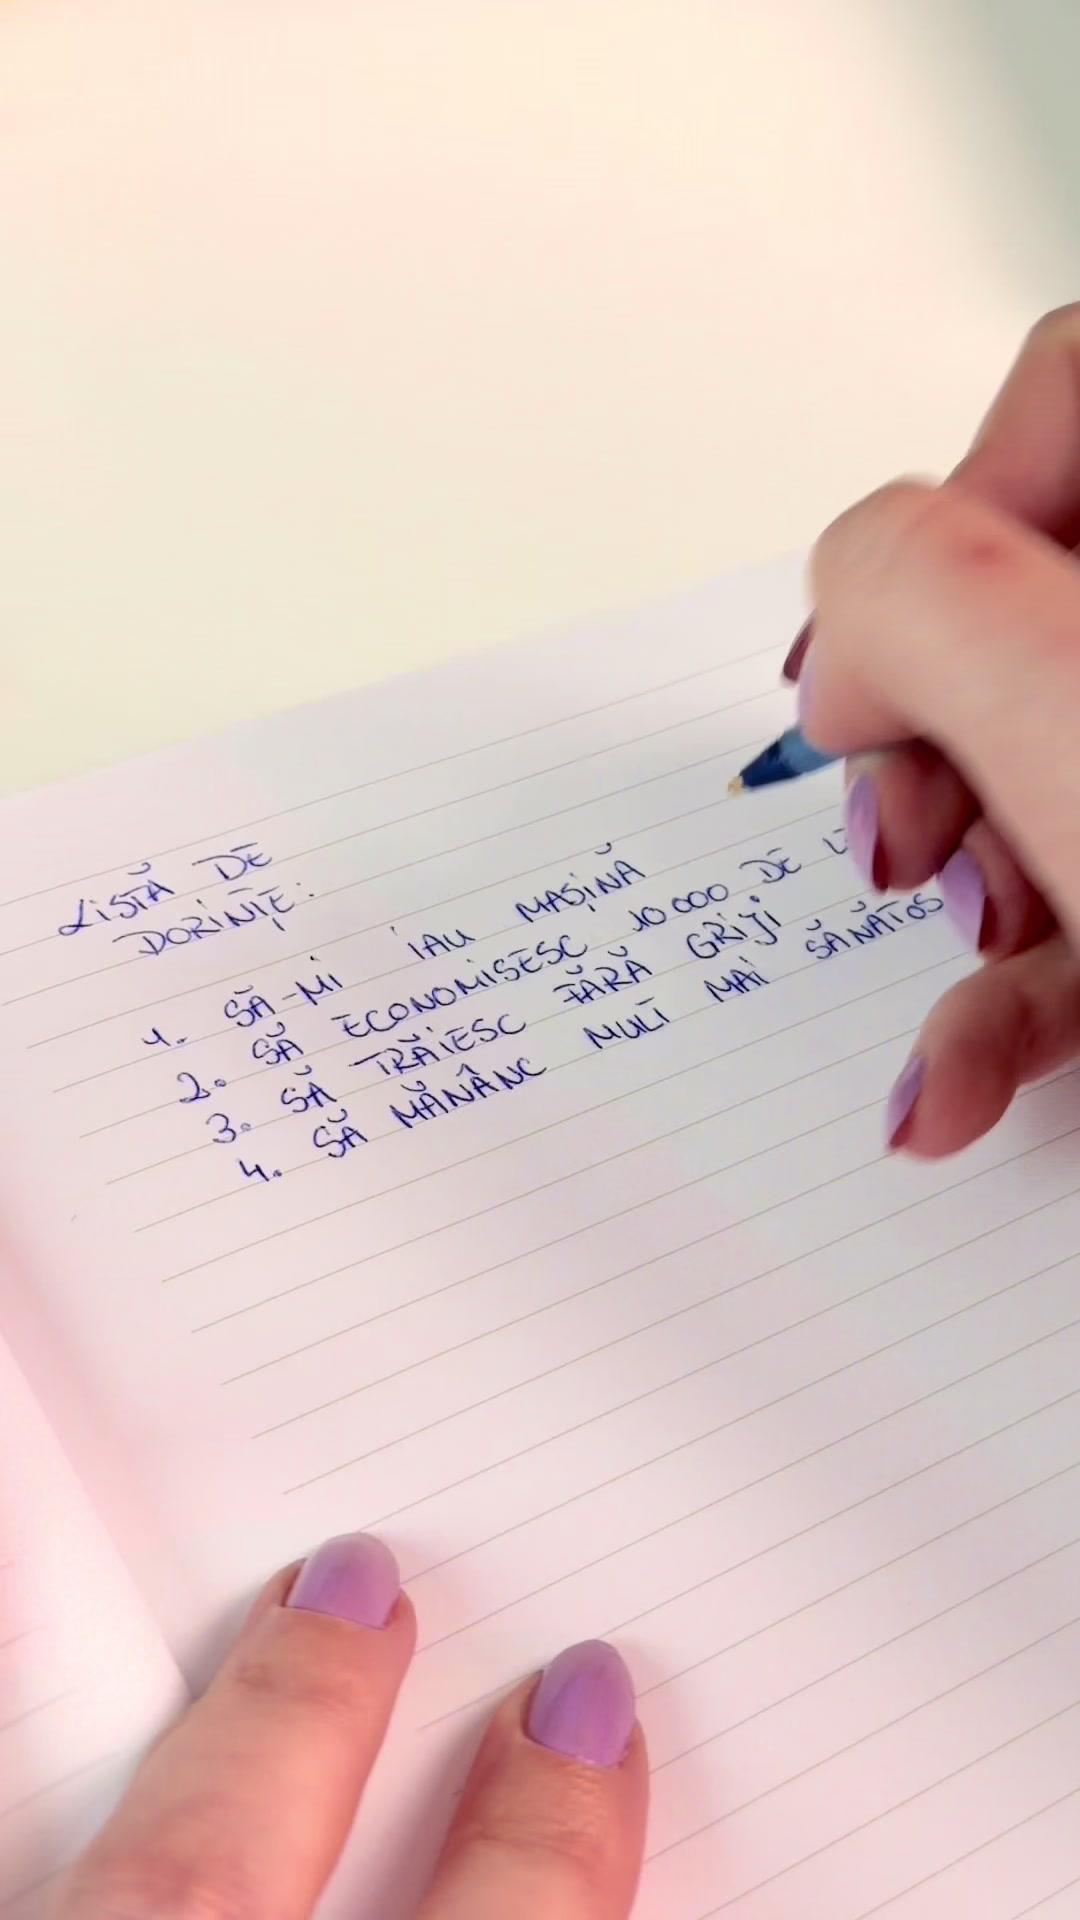 LISTĂ DE
DORINȚE:
1. SĂ-MI IAU MAȘINĂ
2. SĂ ECONOMISESC 10 000 DE
3. SĂ TRĂIESC FĂRĂ GRIJI
4. SĂ MĂNÂNC MULT MAI SĂNĂTOS